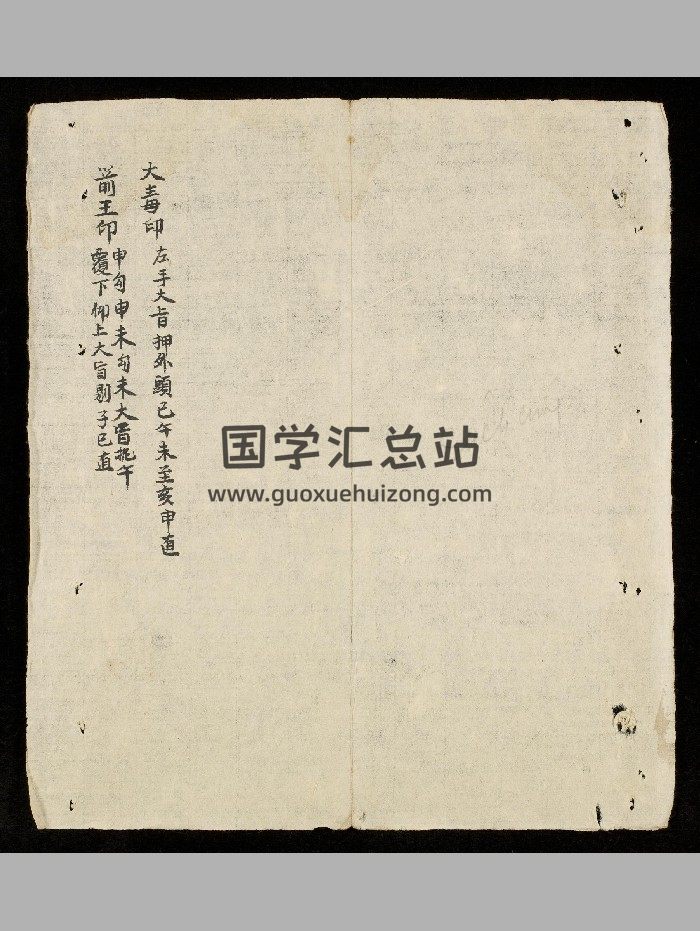 大毒印 左手大旨押外頭巳午未至亥申直
前王印 申勾申未勾未大旨挑午
覆下仰上大旨剔子巳直
国学汇总站
www.guoxuehuizong.com